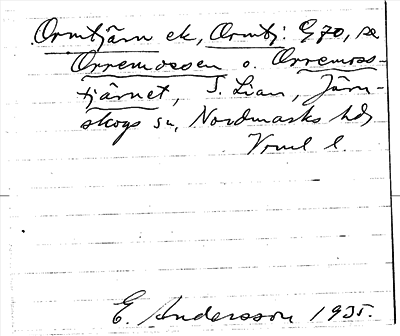 Ormtjärn ek, Ormtj: G70, se
Orremossen o. Orremoss-
tjärnet, S. Lian, Järn-
skogs sn, Nordmarks hd,
Vrml l.
E. Andersson 1935.